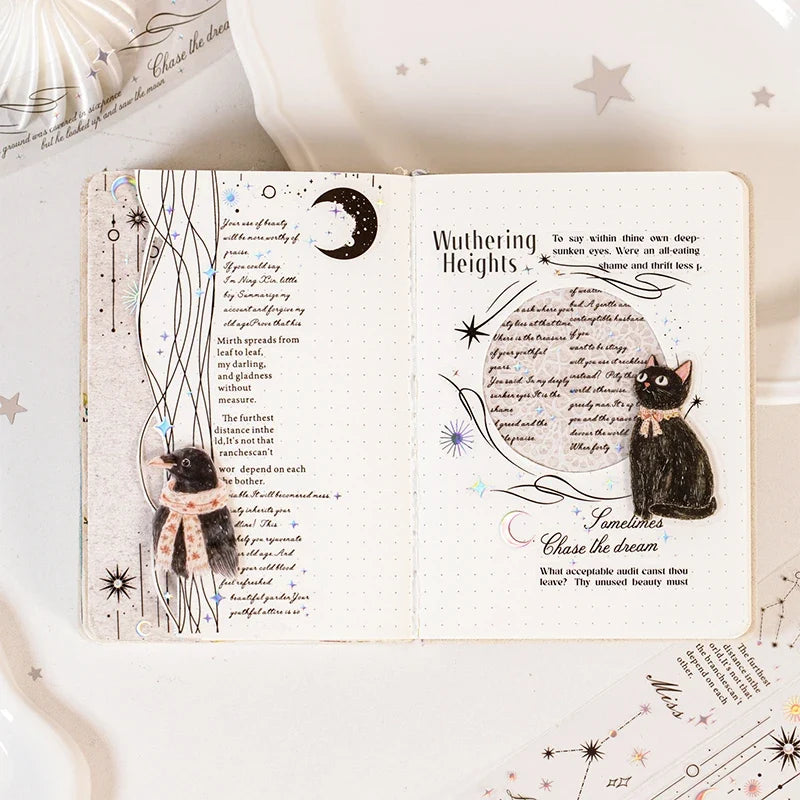 Chase the drea
ground was covered in sixpence
but he looked up and saw the moon
Your use of beauty
will be more worthy of
praise.
If you could say
I'm Ning Xin, little
boy Summarize my
account and forgive my
old age Prove that his
Mirth spreads from
leaf to leaf,
my darling,
and gladness
without
measure.
The furthest
distance inthe
ld,It's not that
ranchescan't
wor depend on each
he bother.
iable. It will becomered mess.
uty inherits your
dline! This
help you rejuvenate
r old age. And
your cold blood
feel refreshed
beautiful garden Your
youthful attire is so
Wuthering
Heights
To say within thine own deep-
sunken eyes. Were an all-eating
shame and thrift less p.
s ask where your
uty lies at that time
Where is the treasure
of your youthful
years.
You said. In my deeply
sunken eyes.It is the
shame
d greed and the
lepraise.
of wearin
bud. A gentle and
contemptible husband.
if you
want to be stingy.
will you use it reckless
instead? Pity th
world otherwise.
greedy man. It's
you and the grave t
devour the world.
When forty
Sometimes
Chase the dream
What acceptable audit canst thou
leave? Thy unused beauty must
The furthest
distance inthe
orld,It's not that
the branchescan't
depend on each
other.
Miss